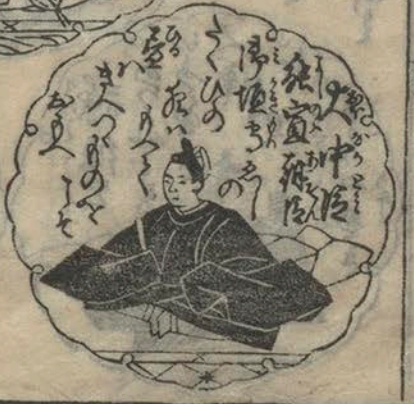 大中臣
能宣朝臣
御垣守ゑじ
の
たくひの
夜ハ
もえて
昼ハ
きえつゝものを
こそ
おもへ